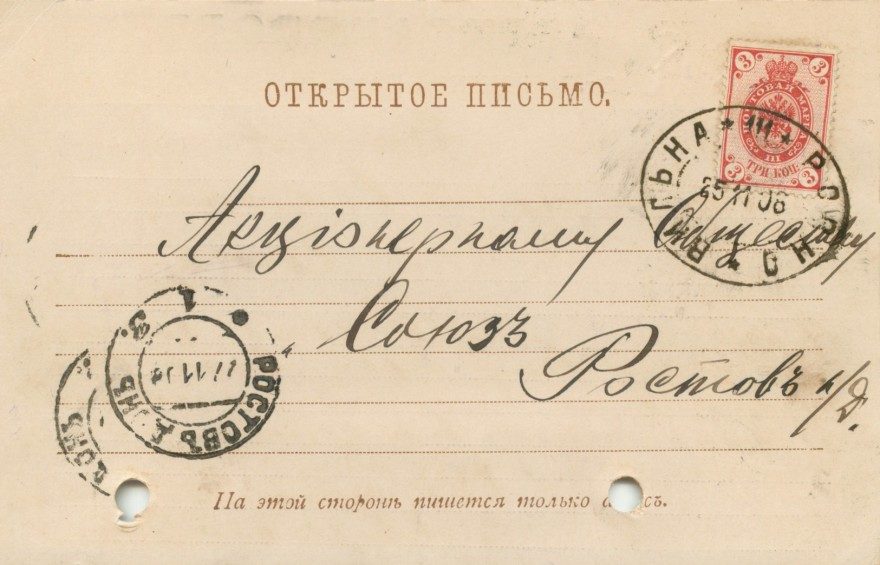 ОТКРЫТОЕ ПИСЬМО.
3 3
ПОЧТОВАЯ МАРКА
III
ТРИ КОП.
3 3
111 РОВНО
25 11 06
Акціонерному Обществу
„Союзъ
Ростовъ н/Д.
РОСТОВЪ Д
На этой сторонѣ пишется только